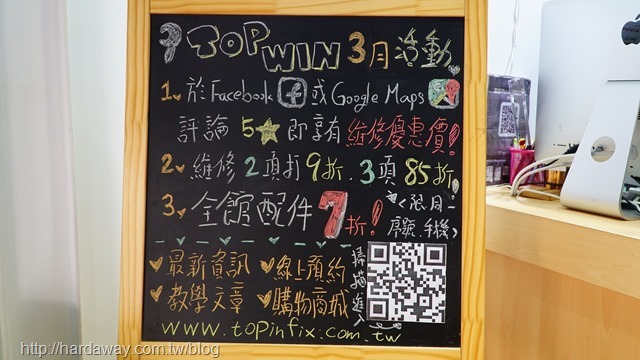 TOPWIN 3月活動
1. 於Facebook或Google Maps
評論 5★ 即享有維修優惠價!
2. 維修2項打9折.3項85折!
3. 全館配件7折!<限同一
序號手機>
最新資訊 線上預約
教學文章 購物商城
掃描進入
www.topinfix.com.tw
http://hardaway.com.tw/blog